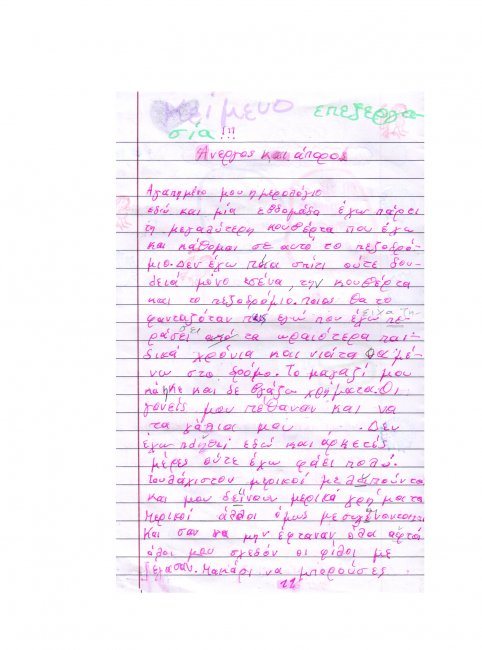 κείμενο επεξεργα
σία!!!
Άνεργος και άπορος
Αγαπημένο μου ημερολόγιο
εδώ και μία εβδομάδα έχω πάρει
τη μεγαλύτερη κουβέρτα που έχω
και κάθομαι σε αυτό το πεζοδρό-
μιο. Δεν έχω πια σπίτι ούτε δου-
δειά μόνο εσένα, την κουβέρτα
και το πεζοδρόμιο. Ποιος θα το
φανταζόταν πως εγώ που είχα πε-
ράσει τα ωραιότερα παι-
δικά χρόνια και νιάτα θα μέ-
νω στο δρόμο. Το μαγαζί μου
κάηκε και δε βγάζω χρήματα. Οι
γονείς μου πέθαναν και να
τα χάλια μου . Δεν
έχω εδώ και αρκετές
μέρες ούτε έχω φάει πολύ.
Τουλάχιστον μερικοί με λυπούνται
και μου δείνουν μερικά χρήματα
Μερικοί άλλοι όμως με
Και σαν να μην έφταναν όλα αφτά
όλοι μου σχεδόν οι φίλοι με
ξέχασαν. Μακάρι να μπορούσες